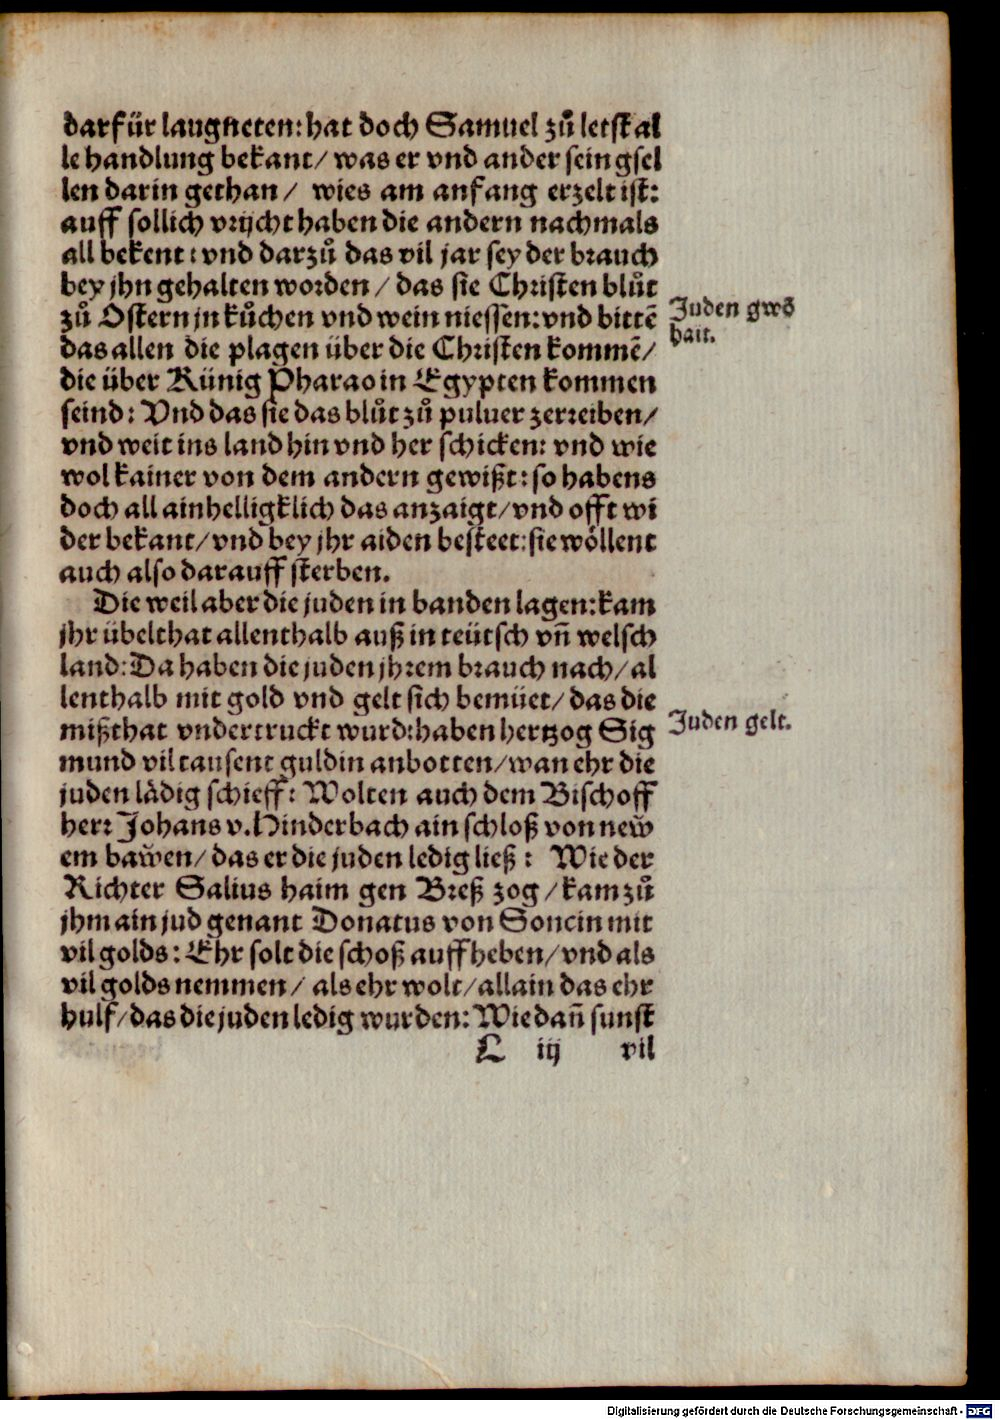 darfür laugneten: hat doch Samuel zů letst al
le handlung bekant/ was er vnd ander sein gsel
len darin gethan/ wies am anfang erzelt ist:
auff sollich vrijcht haben die andern nachmals
all bekent: vnd darzů das vil jar sey der brauch
bey jhn gehalten worden/ das sie Christen blůt
zů Ostern jn kůchen vnd wein niessen: vnd bittẽ
das allen die plagen über die Christen kommẽ/
die über Künig Pharao in Egypten kommen
seind: Vnd das sie das blůt zů puluer zerreiben/
vnd weit ins land hin vnd her schicken: vnd wie
wol kainer von dem andern gewißt: so habens
doch all ainhelligklich das anzaigt/ vnd offt wi
der bekant/ vnd bey jhr aiden besteet: sie wöllent
auch also darauff sterben.
Juden gwõ
hait.
Die weil aber die juden in banden lagen: kam
jhr übelthat allenthalb auß in teütsch vñ welsch
land: Da haben die juden jhrem brauch nach/ al
lenthalb mit gold vnd gelt sich bemüet/ das die
mißthat vndertruckt wurd: haben hertzog Sig
mund vil tausent guldin anbotten/ wan ehr die
juden lädig schieff: Wolten auch dem Bischoff
herr Johans v. Hinderbach ain schloß von new̃
em baw̃en/ das er die juden ledig ließ: Wie der
Richter Salius haim gen Breß zog/ kam zů
jhm ain jud genant Donatus von Soncin mit
vil golds: Ehr solt die schoß auffheben/ vnd als
vil golds nemmen/ als ehr wolt/ allain das ehr
hulf/ das die juden ledig wurden: Wie dañ sunst
Juden gelt.
L iij vil
Digitalisierung gefördert durch die Deutsche Forschungsgemeinschaft - DFG